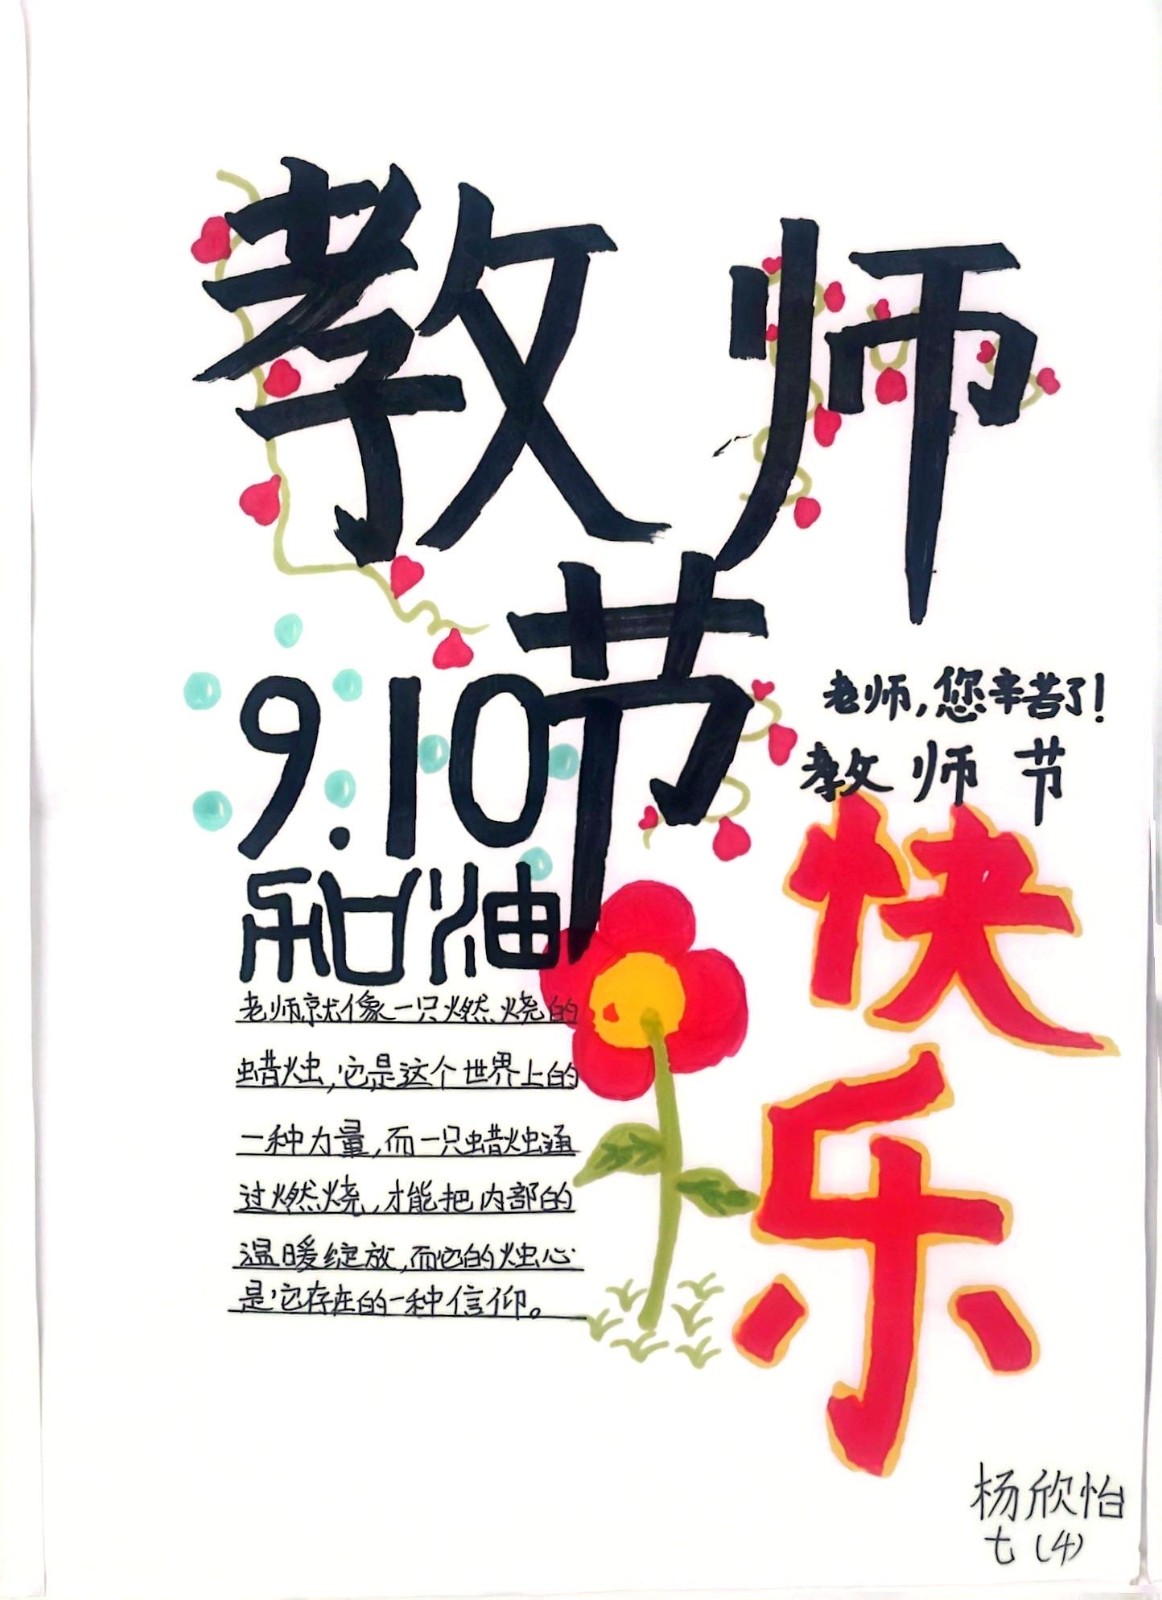 教师
节
9.10
油
老师,您辛苦了!
教师节
快
乐
老师就像一只燃烧的
蜡烛,它是这个世界上的
一种力量,而一只蜡烛通
过燃烧,才能把内部的
温暖绽放,而它的烛心
是它存在的一种信仰。
杨欣怡
七(4)